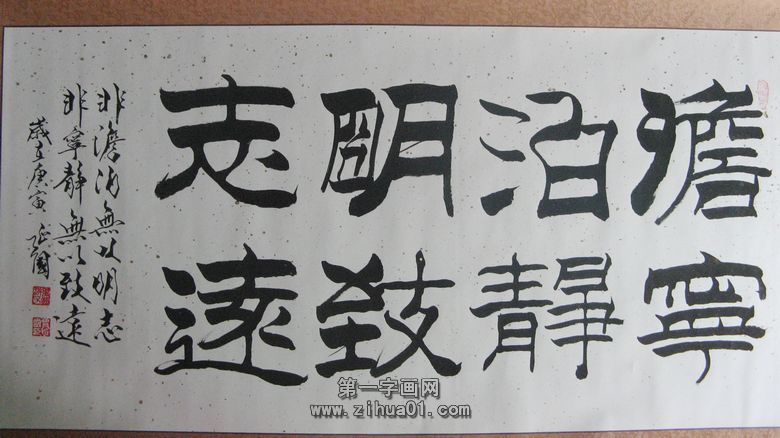 澹泊明志
寧靜致遠
非澹泊無以明志
非寧靜無以致遠
歲在庚寅 延國
第一字画网
www.zihua01.com